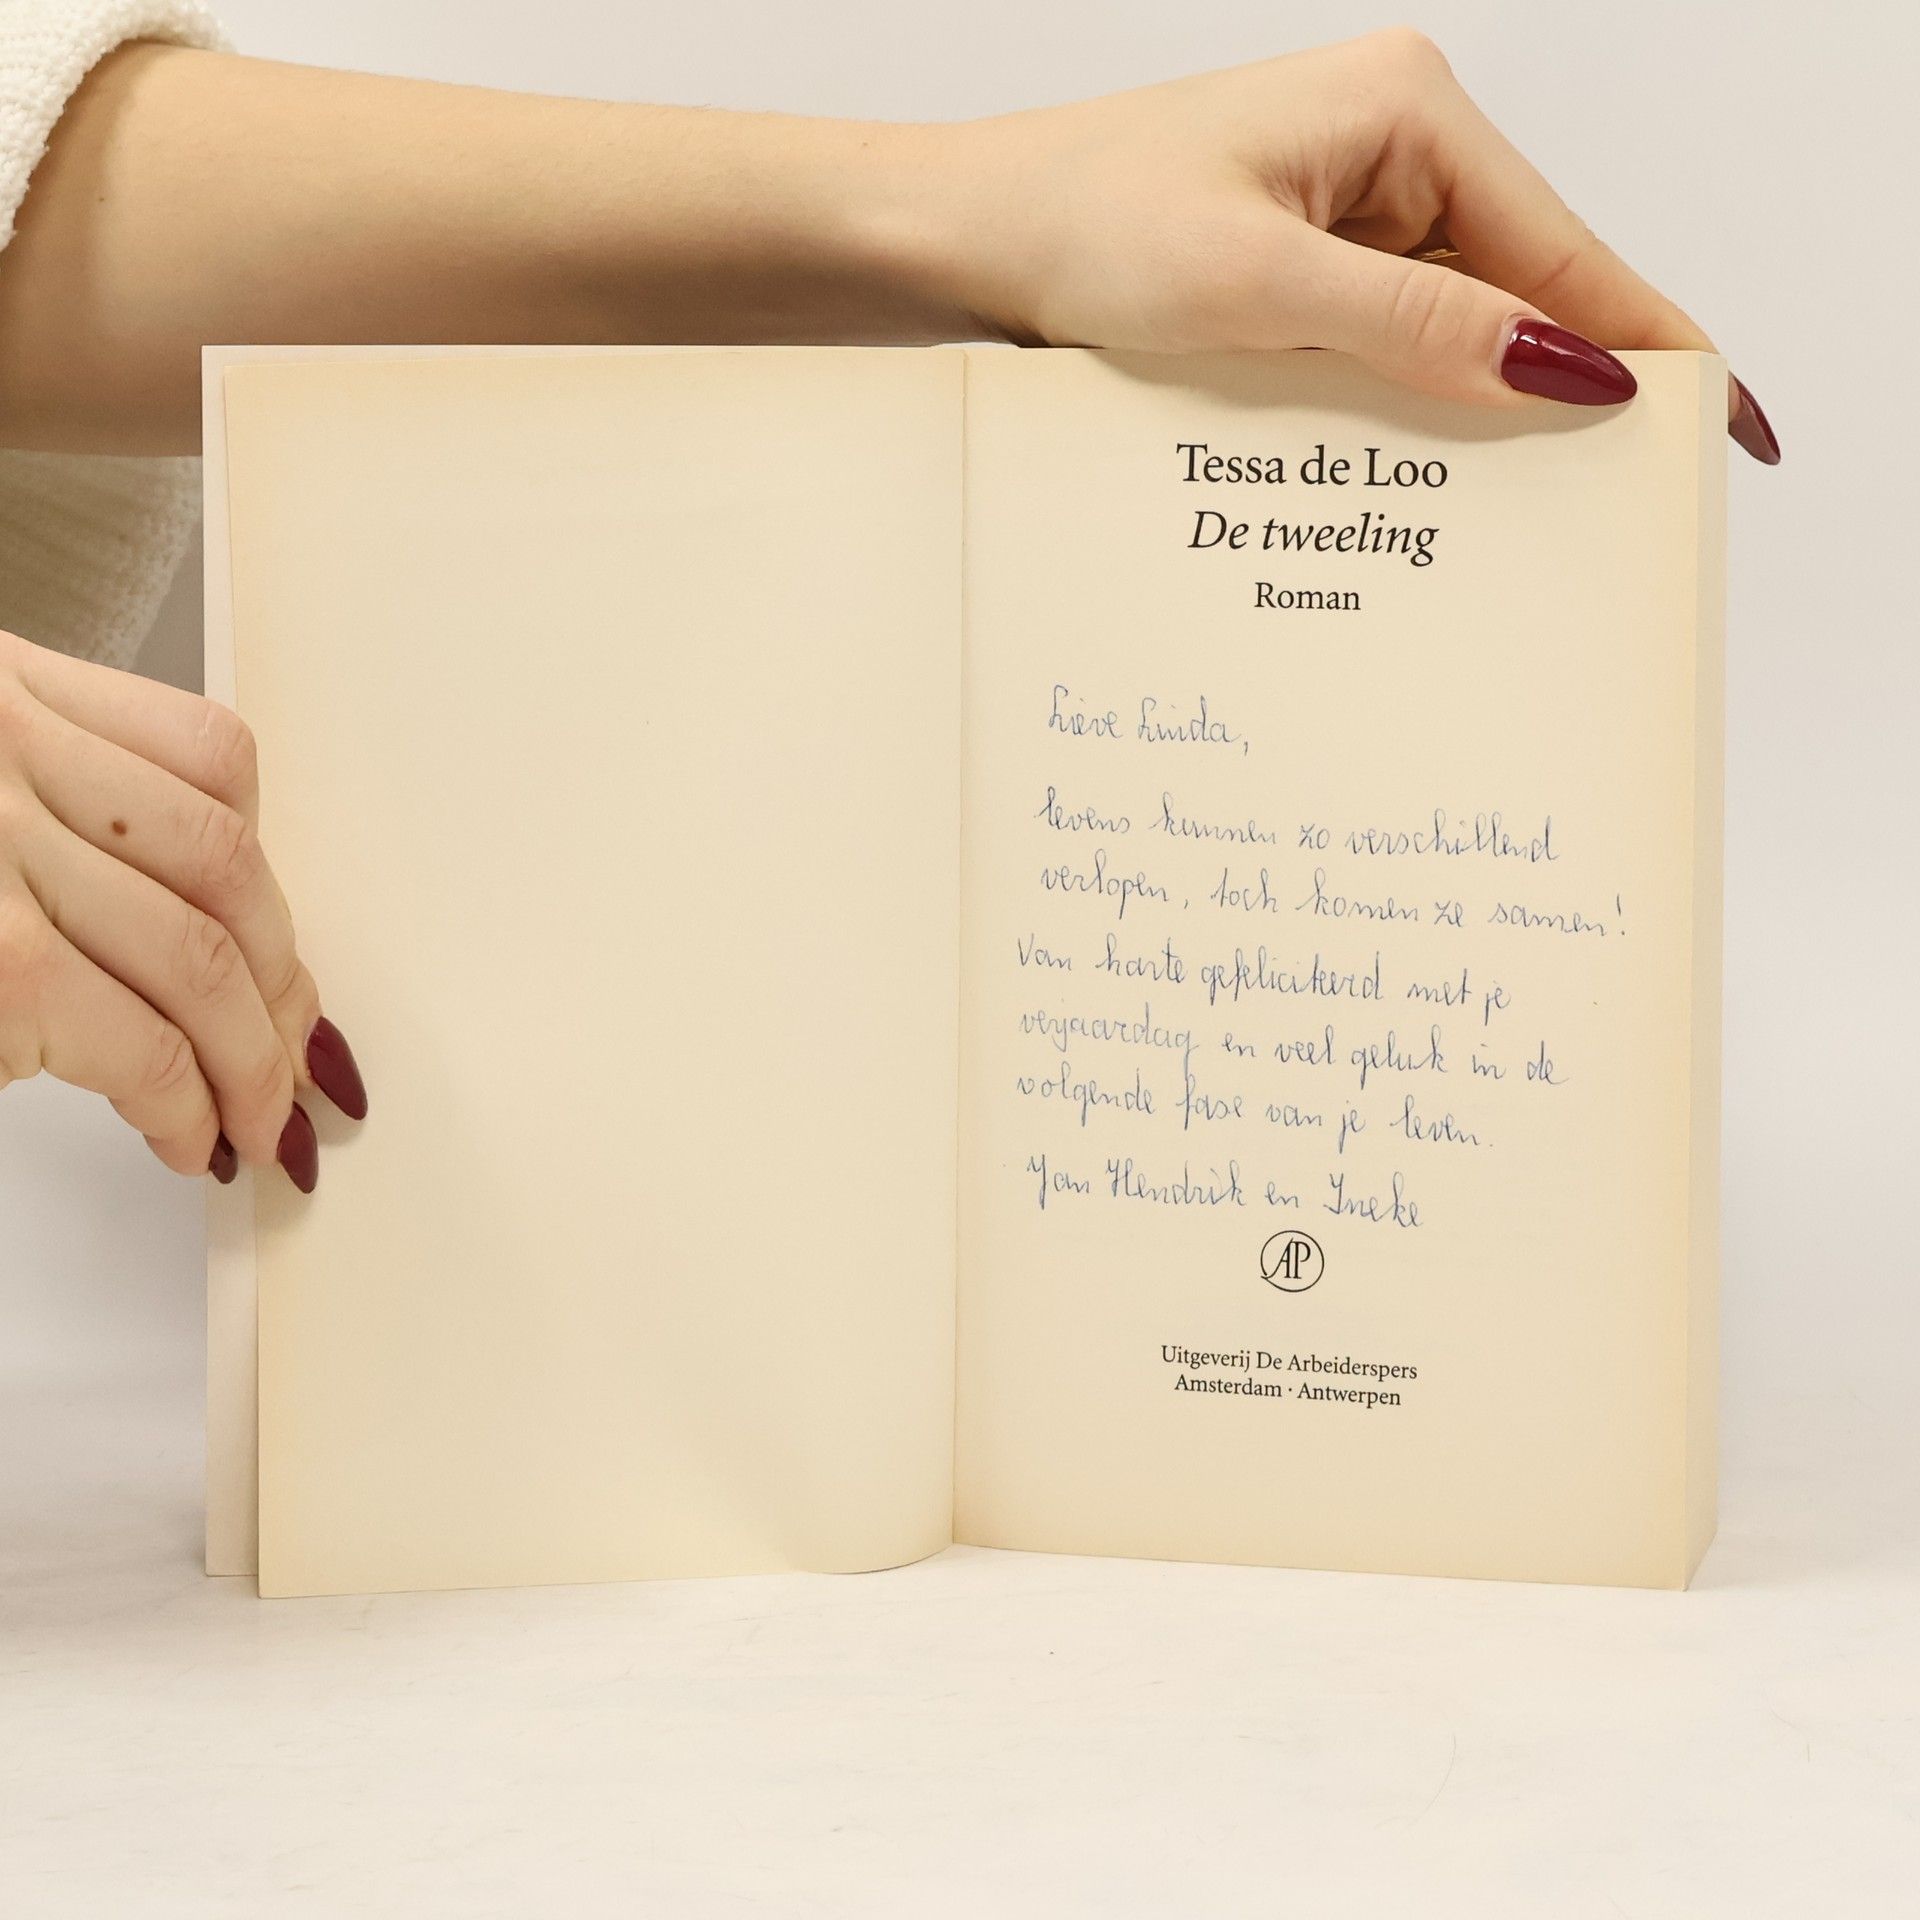 Tessa de Loo
De tweeling
Roman
Lieve Linda,
levens kunnen zo verschillend
verlopen, toch komen ze samen!
Van harte gefeliciteerd met je
verjaardag en veel geluk in de
volgende fase van je leven.
Jan Hendrik en Ineke
AP
Uitgeverij De Arbeiderspers
Amsterdam · Antwerpen